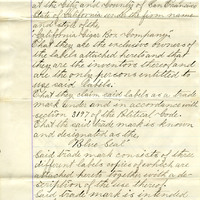 at the City and County of San Francisco
State of California under the firm name
and style of the
California Cigar Box Company"
That they are the exclusive owners of
the labels attached hereto and that
they are the inventors thereof and
are the only persons entitled to
use said labels.
That they claim said labels as a trade
mark under and in accordance with
section 3197 of the Political Code.
That the said trade mark is known
and designated as the
"Blue Seal"
Said trade mark consists of three
different labels copies of which are
attached hereto together with a de-
scription of the use thereof.
Said trade mark is intended